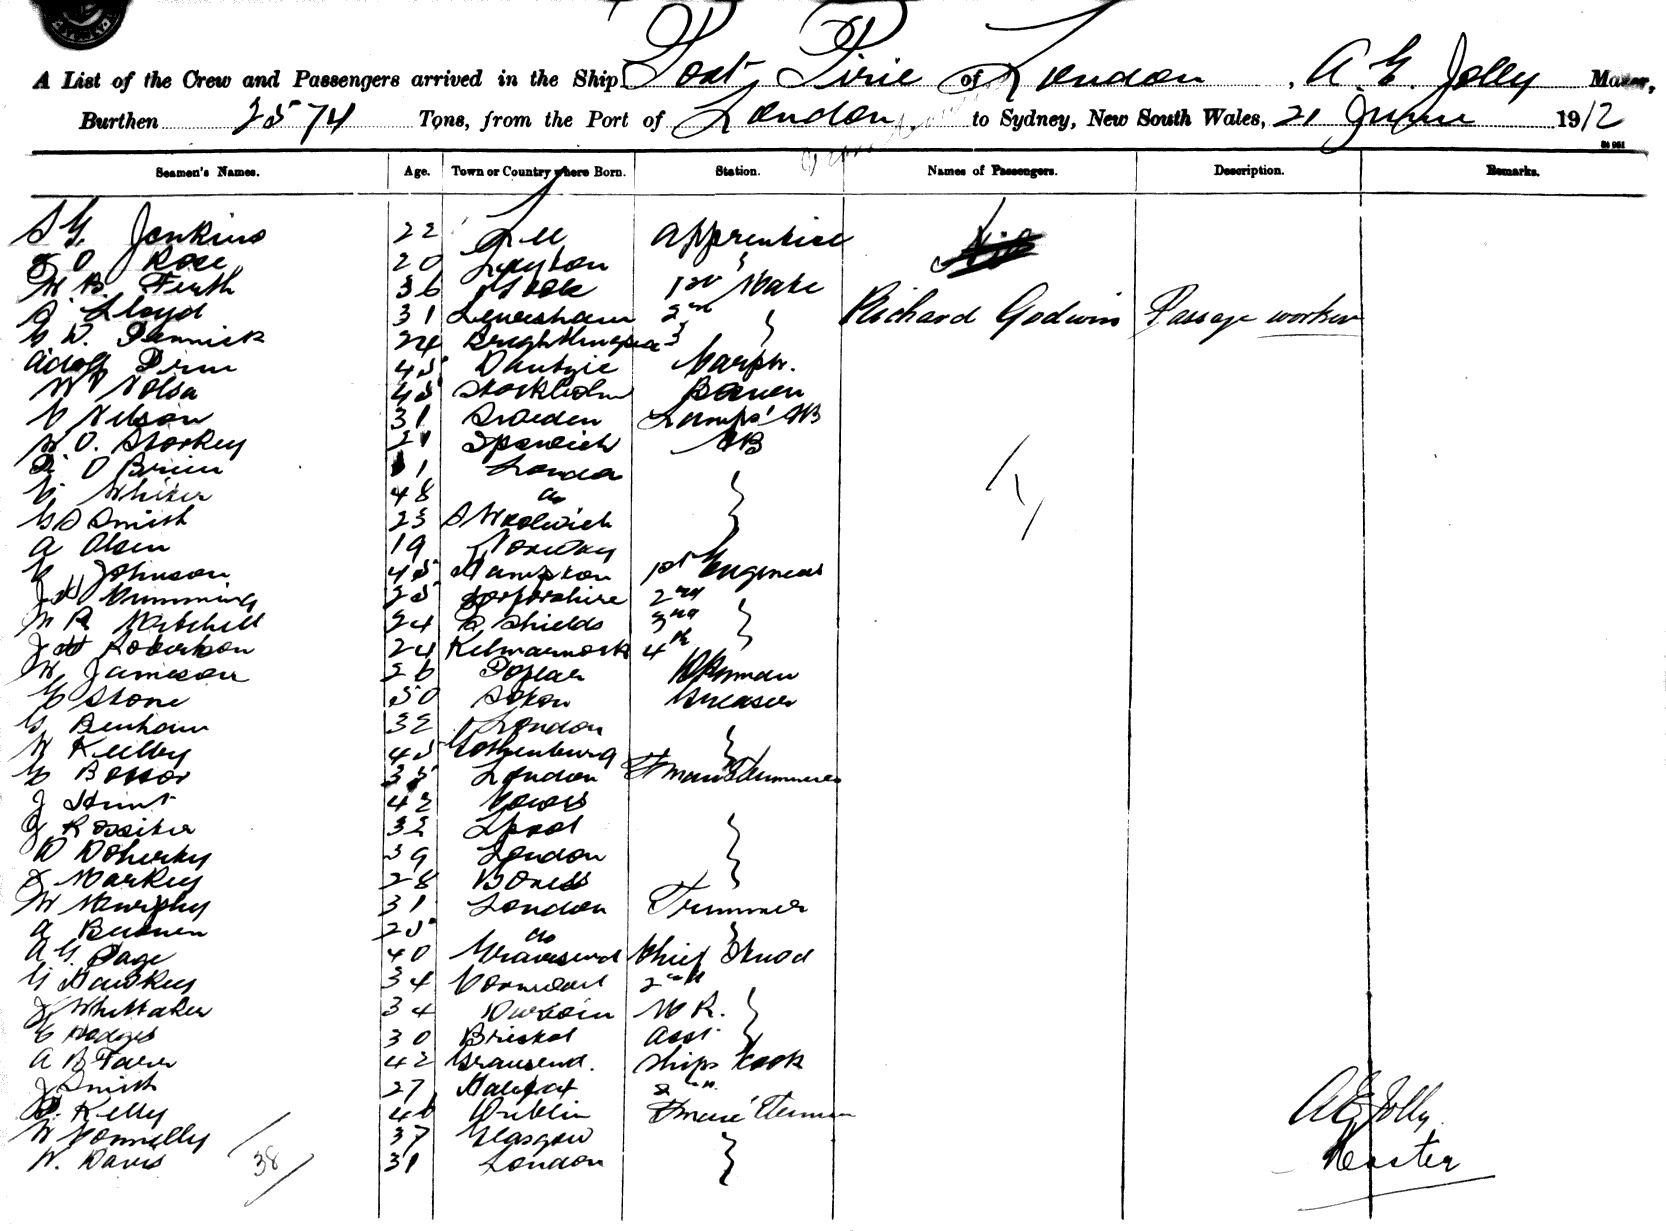 A List of the Crew and Passengers arrived in the Ship Port Pirie of London, A. E. Jolly Master,
Burthen 2574 Tons, from the Port of London to Sydney, New South Wales, 21 June 1912
Seamen's Names. Age. Town or Country where Born. Station. Names of Passengers. Description. Remarks.
S G. Jenkins 22 Lee Apprentice
O Rose 20 Leyton
W B. Firth 36 1st Mate
S Lloyd 31 Lewisham 2nd Richard Godwin Passage worker
24 Brightlingsea 3
Adolf 45 Dantzic Carptr.
W 45 Stockholm Bosun
C Nelson 31 Sweden Lamps AB
W O. Storkey 21 Ipswich AB
O Brien London
48 do
G S Smith 23 S Woolwich
A Olsen 19 Norway
C Johnson 45 Hampton 1st Engineer
J H Cumming 25 2nd
W R Mitchell 24 S Shields 3rd
J H Robertson 24 Kilmarnock 4th
W Jameson 26 Poplar Dkyman
C Stone 50 Greaser
G Benham 32 London
W 45 Gothenburg
C 35 London Fman & Trimmer
J Hunt 42 Cowes
J Rossiter 32 Lpool
D Doherty 39 London
J Markey 28 Boness
W Murphy 31 London Trimmer
A 25 do
A G. Page 40 Gravesend Chief Stwd
G Hawkey 34 2nd
J Whittaker 34 M R.
C Hodges 30 Bristol Asst
A B Farr 42 Gravesend. Ships Cook
J Smith 27 Halifax 2nd
Kelly 46 Dublin
A E Jolly
W Connolly 37 Glasgow
W. Davis 31 London
38
Master